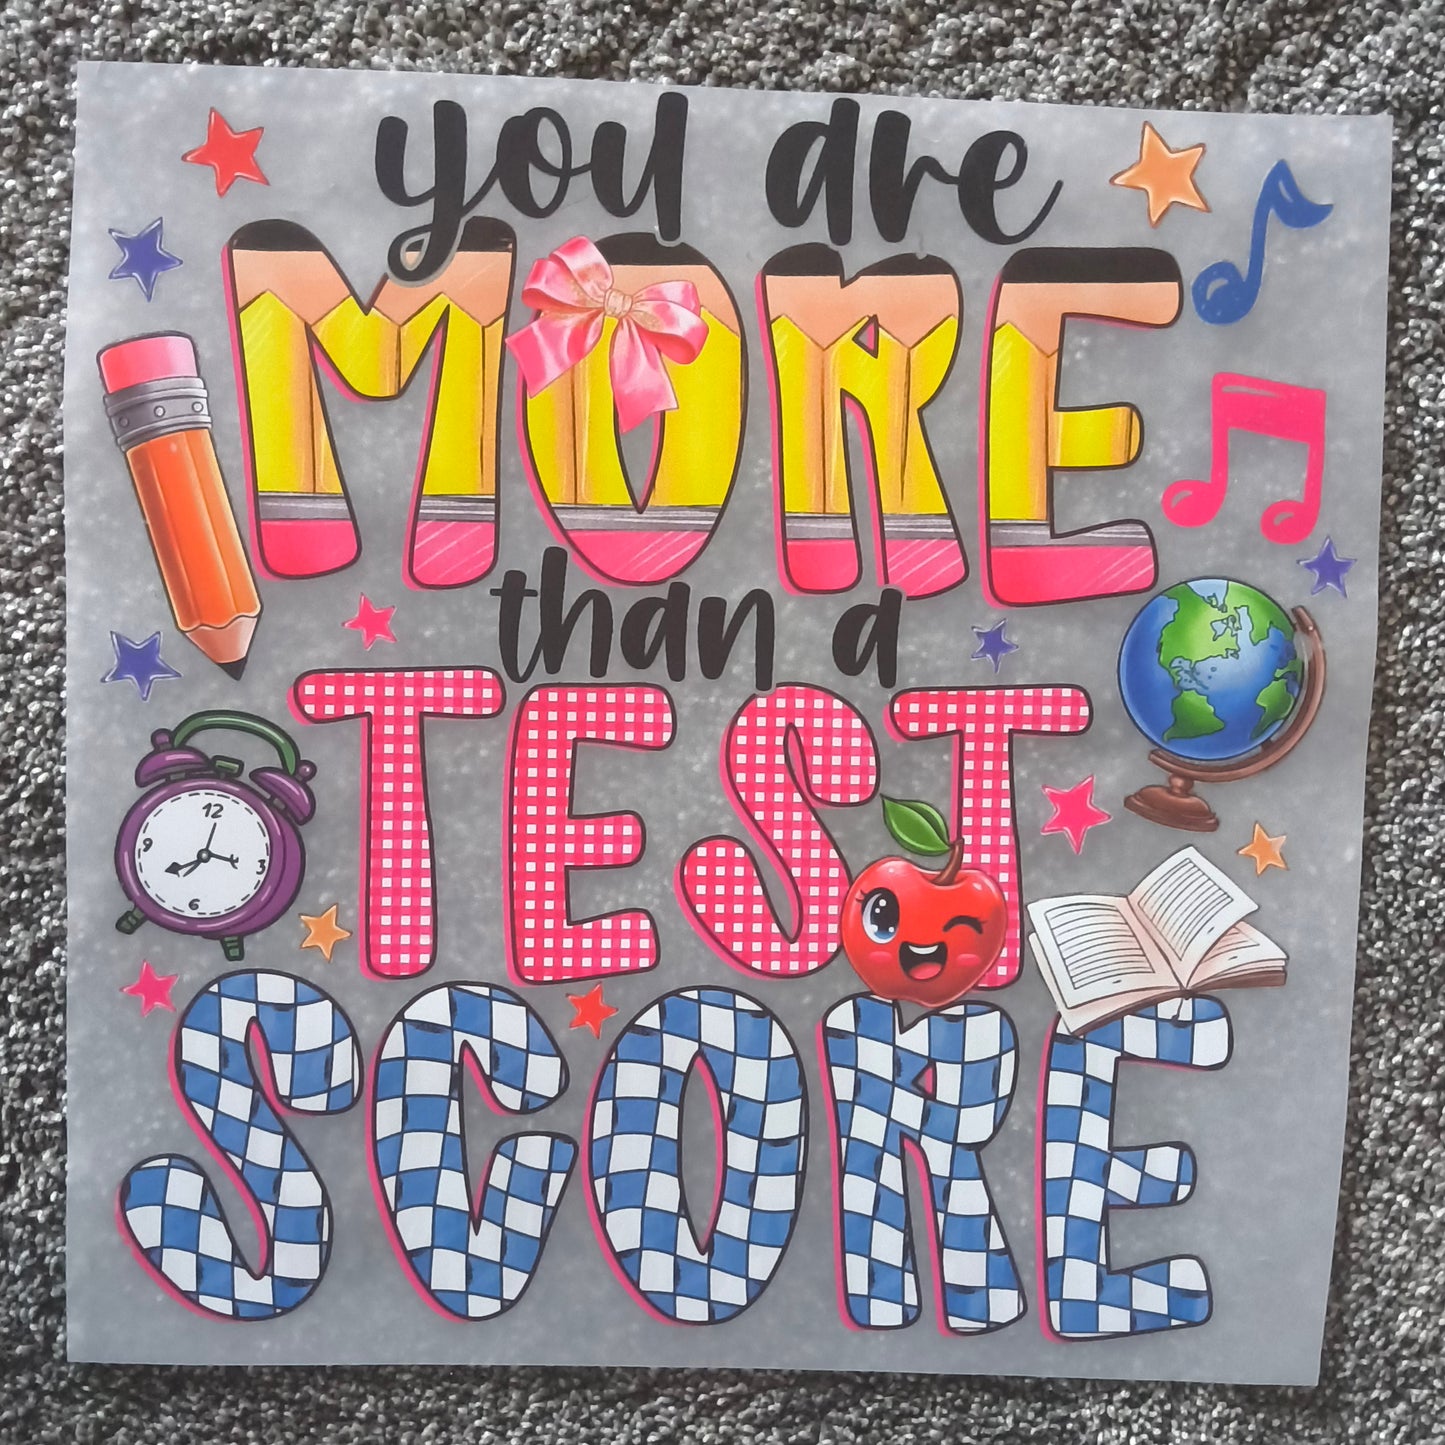 you are
MORE
than a
TEST
SCORE
12
9
3
6